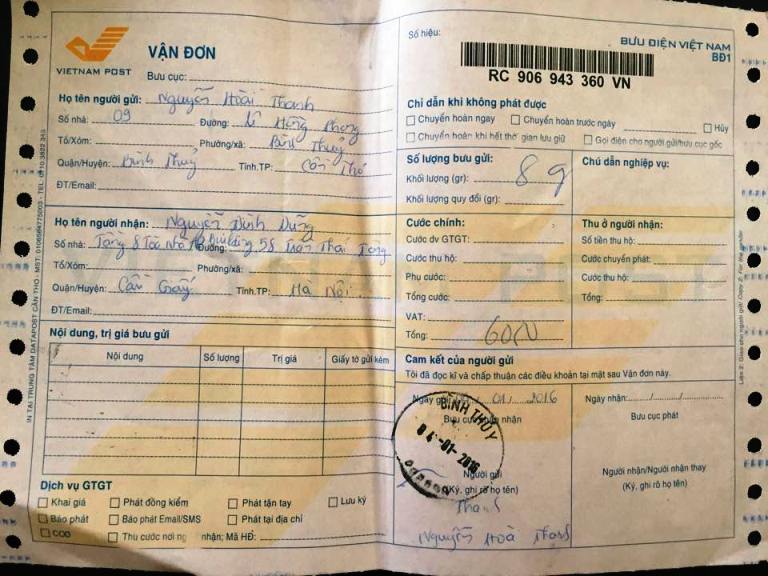 VIETNAM POST
VẬN ĐƠN
Bưu cục:
Họ tên người gửi: Nguyễn Hoài Thanh
Số nhà: 09 Đường: Lê Hồng Phong
Tổ/Xóm: Phường/xã: Bình Thuỷ
Quận/Huyện: Bình Thuỷ Tỉnh.TP: Cần Thơ
ĐT/Email:
Họ tên người nhận: Nguyễn Đình Dũng
Số nhà: Tầng 8 Toà Nhà Building, 58 Đường: Trần Thái Tông
Tổ/Xóm: Phường/xã:
Quận/Huyện: Cầu Giấy Tỉnh.TP: Hà Nội.
ĐT/Email:
Nội dung, trị giá bưu gửi
Nội dung Số lượng Trị giá Giấy tờ gửi kèm
Dịch vụ GTGT
Khai giá Phát đồng kiểm Phát tận tay Lưu ký
Báo phát Báo phát Email/SMS Phát tại địa chỉ
COD Thu cước nơi người nhận; Mã HĐ:
Số hiệu:
BƯU ĐIỆN VIỆT NAM
BĐ1
RC 906 943 360 VN
Chỉ dẫn khi không phát được
Chuyển hoàn ngay Chuyển hoàn trước ngày Hủy
Chuyển hoàn khi hết thời gian lưu giữ Gọi điện cho người gửi/bưu cục gốc
Số lượng bưu gửi:
Khối lượng (gr): 8 g
Khối lượng quy đổi (gr):
Chú dẫn nghiệp vụ:
Cước chính:
Cước dv GTGT:
Cước thu hộ:
Phụ cước:
Tổng cước:
VAT:
Tổng:
Thu ở người nhận:
Số tiền thu hộ:
Cước chuyển phát:
Cước thu hộ:
Tổng:
Cam kết của người gửi
Tôi đã đọc kĩ và chấp thuận các điều khoản tại mặt sau Vận đơn này.
Ngày gửi: 01/2016
Bưu cục chấp nhận
BÌNH THỦY
04-01-2016
Người gửi
(Ký, ghi rõ họ tên)
Thanh
Nguyễn Hoài Thanh
Ngày nhận: / /
Bưu cục phát
Người nhận/Người nhận thay
(Ký, ghi rõ họ tên)